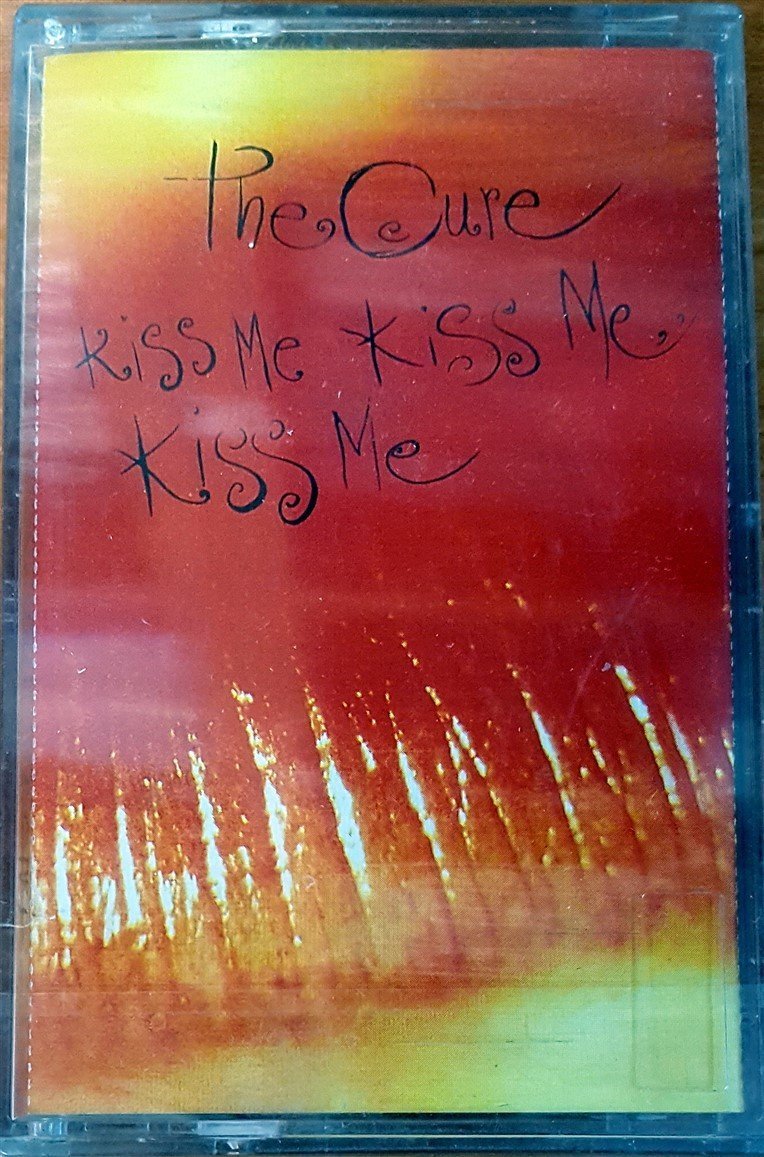 the Cure
Kiss Me Kiss Me
Kiss Me